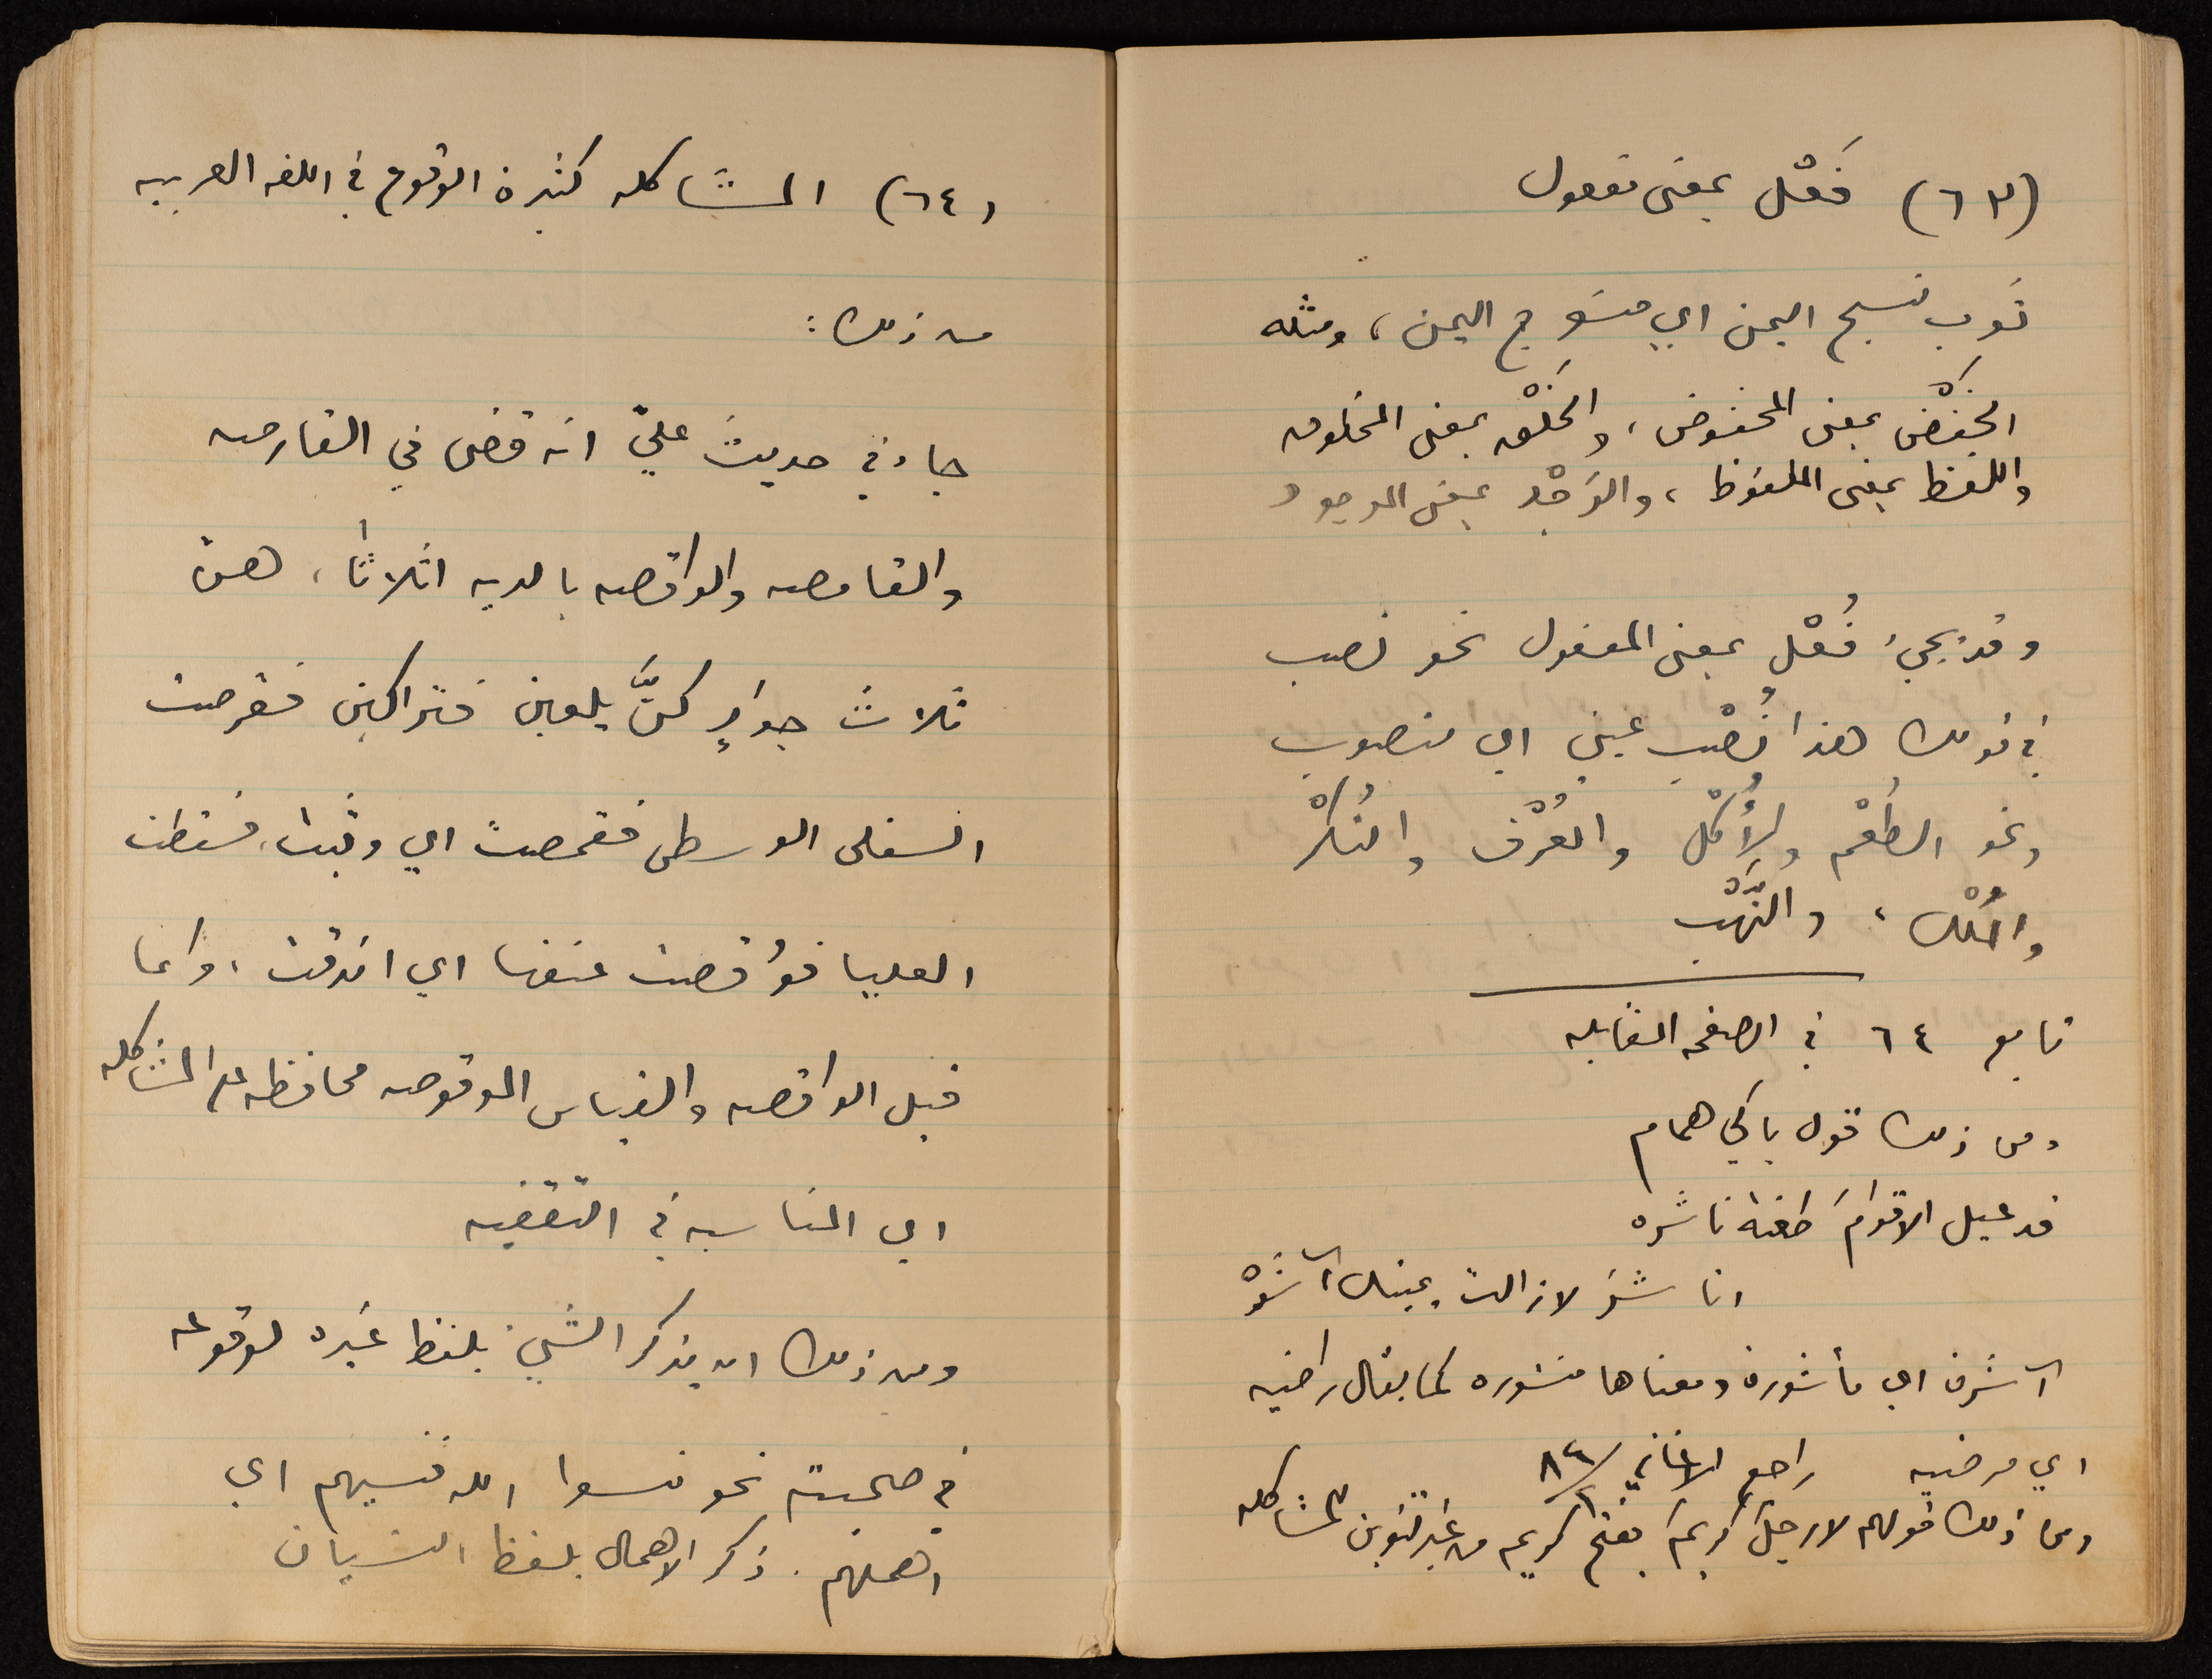 (٦٣) فَعْل بمعنى مفعول
ثوب نسج اليمن اي منسوج اليمن، ومثله
الخَفْض بمعنى المخفوض، والخَلْق بمعنى المخلوق
واللفظ بمعنى الملفوظ، والوَجْد بمعنى الموجود
وقد يجيء فُعْل بمعنى المفعول نحو نصب
في قولك هذا نُصْب عيني اي منصوب
ونحو الطُعْم والأُكْل والعُرْف والنُكْر
والمُلْك، والنَّهْب
تابع ٦٤ في الصفحه المقابله
ومن ذلك قول باكي همام
قد عيل الاقوامَ طعنة ناشره
اناشرَ لا زالت يمينك آشرهْ
آشرة اي مأشورة ومعناها منشوره كما يقال راضيه
اي مرضيه راجع الاغاني
ومن ذلك قولهم لا رجلَ كريمَ بفتح كريم من غير تنوين للمشاكله
(٦٤) المشاكله كثيرة الوقوع في اللغه العربيه
من ذلك:
جاء في حديث عليّ انه قضى في القارصه
والقامصه والواقصه بالديه اثلاثاً، هنّ
ثلاث جوارٍ كنَّ يلعبن فتراكبن فقرصت
السفلى الوسطى فقمصت اي وثبت، فسقطت
العليا فوُقصت عنقها اي اندقت، وانما
قيل الواقصه والقياس الموقوصه محافظه على المشاكله
اي المناسبه في التقفيه
ومن ذلك ان يذكر الشيء بلفظ غيره لوقوعه
في صحبته نحو نسوا الله فنسيهم اي
اهملهم. ذكر الاهمال بلفظ النسيان